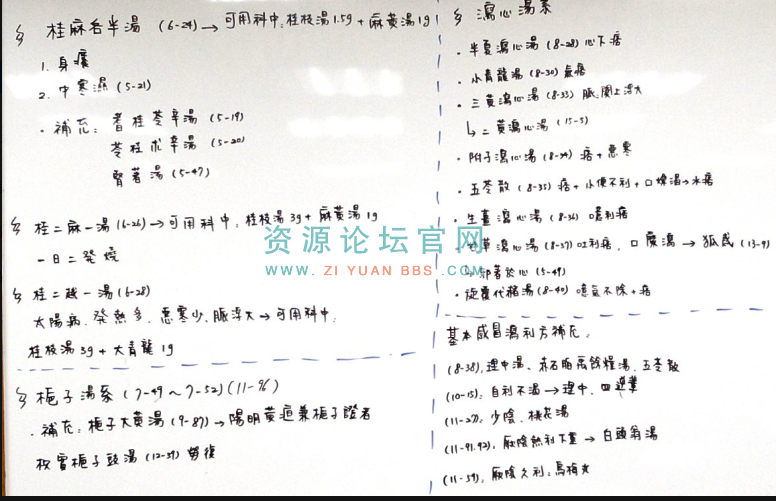 桂麻各半湯 (6-24) → 可用科中:桂枝湯1.5g + 麻黃湯1g
1. 身癢
2. 中寒濕 (5-21)
・補充:耆桂苓辛湯 (5-19)
苓桂朮辛湯 (5-20)
腎著湯 (5-47)
桂二麻一湯 (6-26) → 可用科中:桂枝湯3g + 麻黃湯1g
一日二発燒
桂二越一湯 (6-28)
太陽病、発熱多、惡寒少、脈浮大 → 可用科中:
桂枝湯3g + 大青龍1g
梔子湯系 (7-49~7-52) (11-96)
・補充:梔子大黃湯 (9-87) → 陽明黃疸兼梔子證者
枳實梔子豉湯 (12-39) 勞復
瀉心湯系
・半夏瀉心湯 (8-28) 心下痞
・小青龍湯 (8-30)
・三黃瀉心湯 (8-33) 脈:関上浮大
↳ 二黃瀉心湯 (15-5)
・附子瀉心湯 (8-34) 痞+惡寒
・五苓散 (8-35) 痞+小便不利+口燥渴→水痞
・生薑瀉心湯 (8-36) 噫利痞
・甘草瀉心湯 (8-37) 吐利痞、口糜瀉 → 狐惑 (13-9)
↳ 邪著於心 (5-49)
・旋覆代赭湯 (8-40) 噫氣不除+痞
基本感冒瀉利方補充:
(8-38):理中湯、赤石脂禹餘糧湯、五苓散
(10-15):自利不渴→理中、四逆輩
(11-27):少陰、桃花湯
(11-91.92):厥陰熱利下重 → 白頭翁湯
(11-59):厥陰久利:烏梅丸
资源论坛官网
WWW.ZIYUANBBS.COM